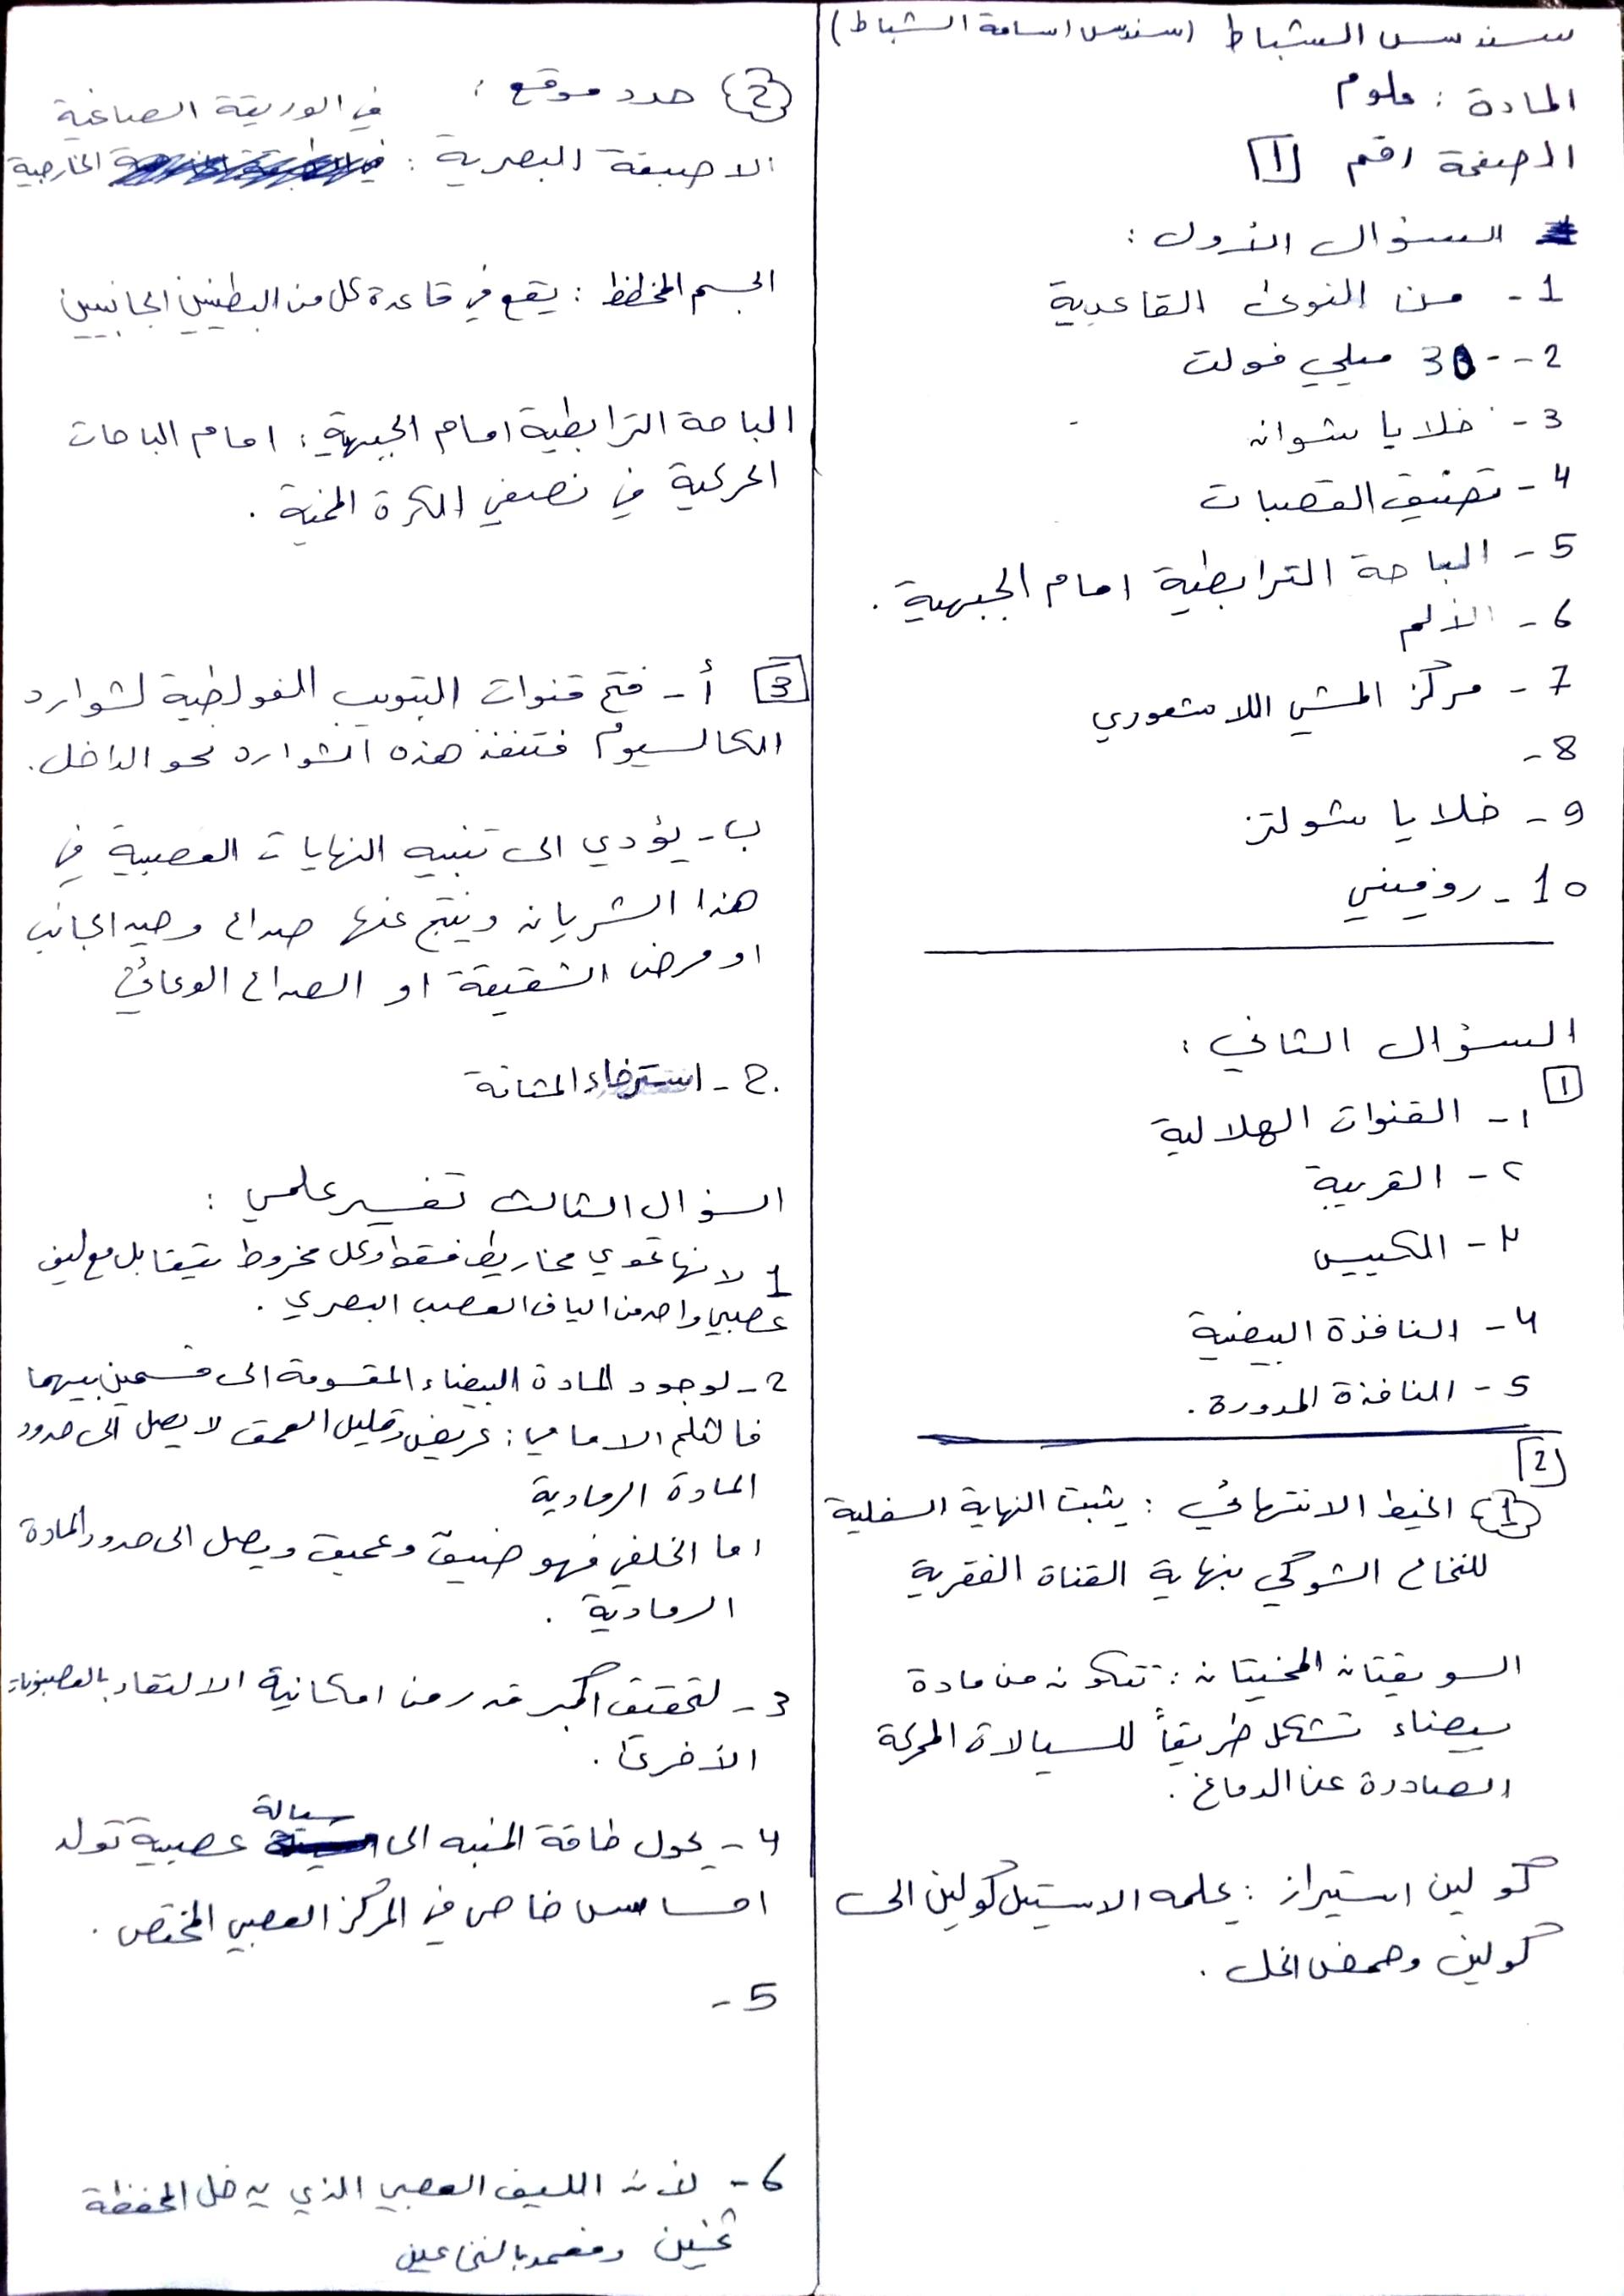 سندس الشباط (سندس اسامة الشباط)
المادة : علوم
الصفحة رقم 1
السؤال الأول :
1 - من النوى القاعدية
2 - -30 ميلي فولت
3 - خلايا شوان
4 - تضيق القصبات
5 - الباحة الترابطية امام الجبهية .
6 - الألم
7 - مركز المشي اللاشعوري
8 -
9 - خلايا شولتز
10 - روفيني
السؤال الثاني :
1
١ - القنوات الهلالية
٢ - القريبة
٣ - الكييس
٤ - النافذة البيضية
5 - النافذة المدورة .
2
1 الخيط الانتهائي : يثبت النهاية السفلية
للنخاع الشوكي بنهاية القناة الفقرية
السويقتان المخيتان : تتكون من مادة
بيضاء تشكل طريقاً للسيالة المحركة
الصادرة عن الدماغ .
كولين استيراز : يحلمه الاستيل كولين الى
كولين وحمض الخل .
2 حدد موقع :
في الوريقة الصباغية
الاصبغة البصرية : الخارجية
الجسم المخطط : يقع في قاعدة كل من البطينين الجانبيين
الباحة الترابطية امام الجبهية : امام الباحات
الحركية في نصفي الكرة المخية .
3 أ - فتح قنوات التبويب الفولطية لشوارد
الكالسيوم فتنفذ هذه الشوارد نحو الداخل .
ب - يؤدي الى تنبيه النهايات العصبية في
هذا الشريان وينتج عنها صداع وحيد الجانب
او مرض الشقيقة او الصداع الوعائي
ج - استرخاء المثانة
السؤال الثالث تفسير علمي :
1 لانها تحوي مخاريط فقط وكل مخروط يتقابل مع ليف
عصبي واحد من الياف العصب البصري .
2 - لوجود المادة البيضاء المقسومة الى قسمين بينهما
فالثلم الامامي : عريض وقليل العمق لا يصل الى حدود
المادة الرمادية
اما الخلفي فهو ضيق وعميق ويصل الى حدود المادة
الرمادية .
3 - لتحقيق اكبر قدر من امكانية الالتقاء بالعصبونات
الأخرى .
4 - يحول طاقة المنبه الى سيالة عصبية تولد
احساس خاص في المركز العصبي المختص .
5 -
6 - لأن الليف العصبي الذي يدخل المحفظة
ثخين ومغمد بالنخاعين